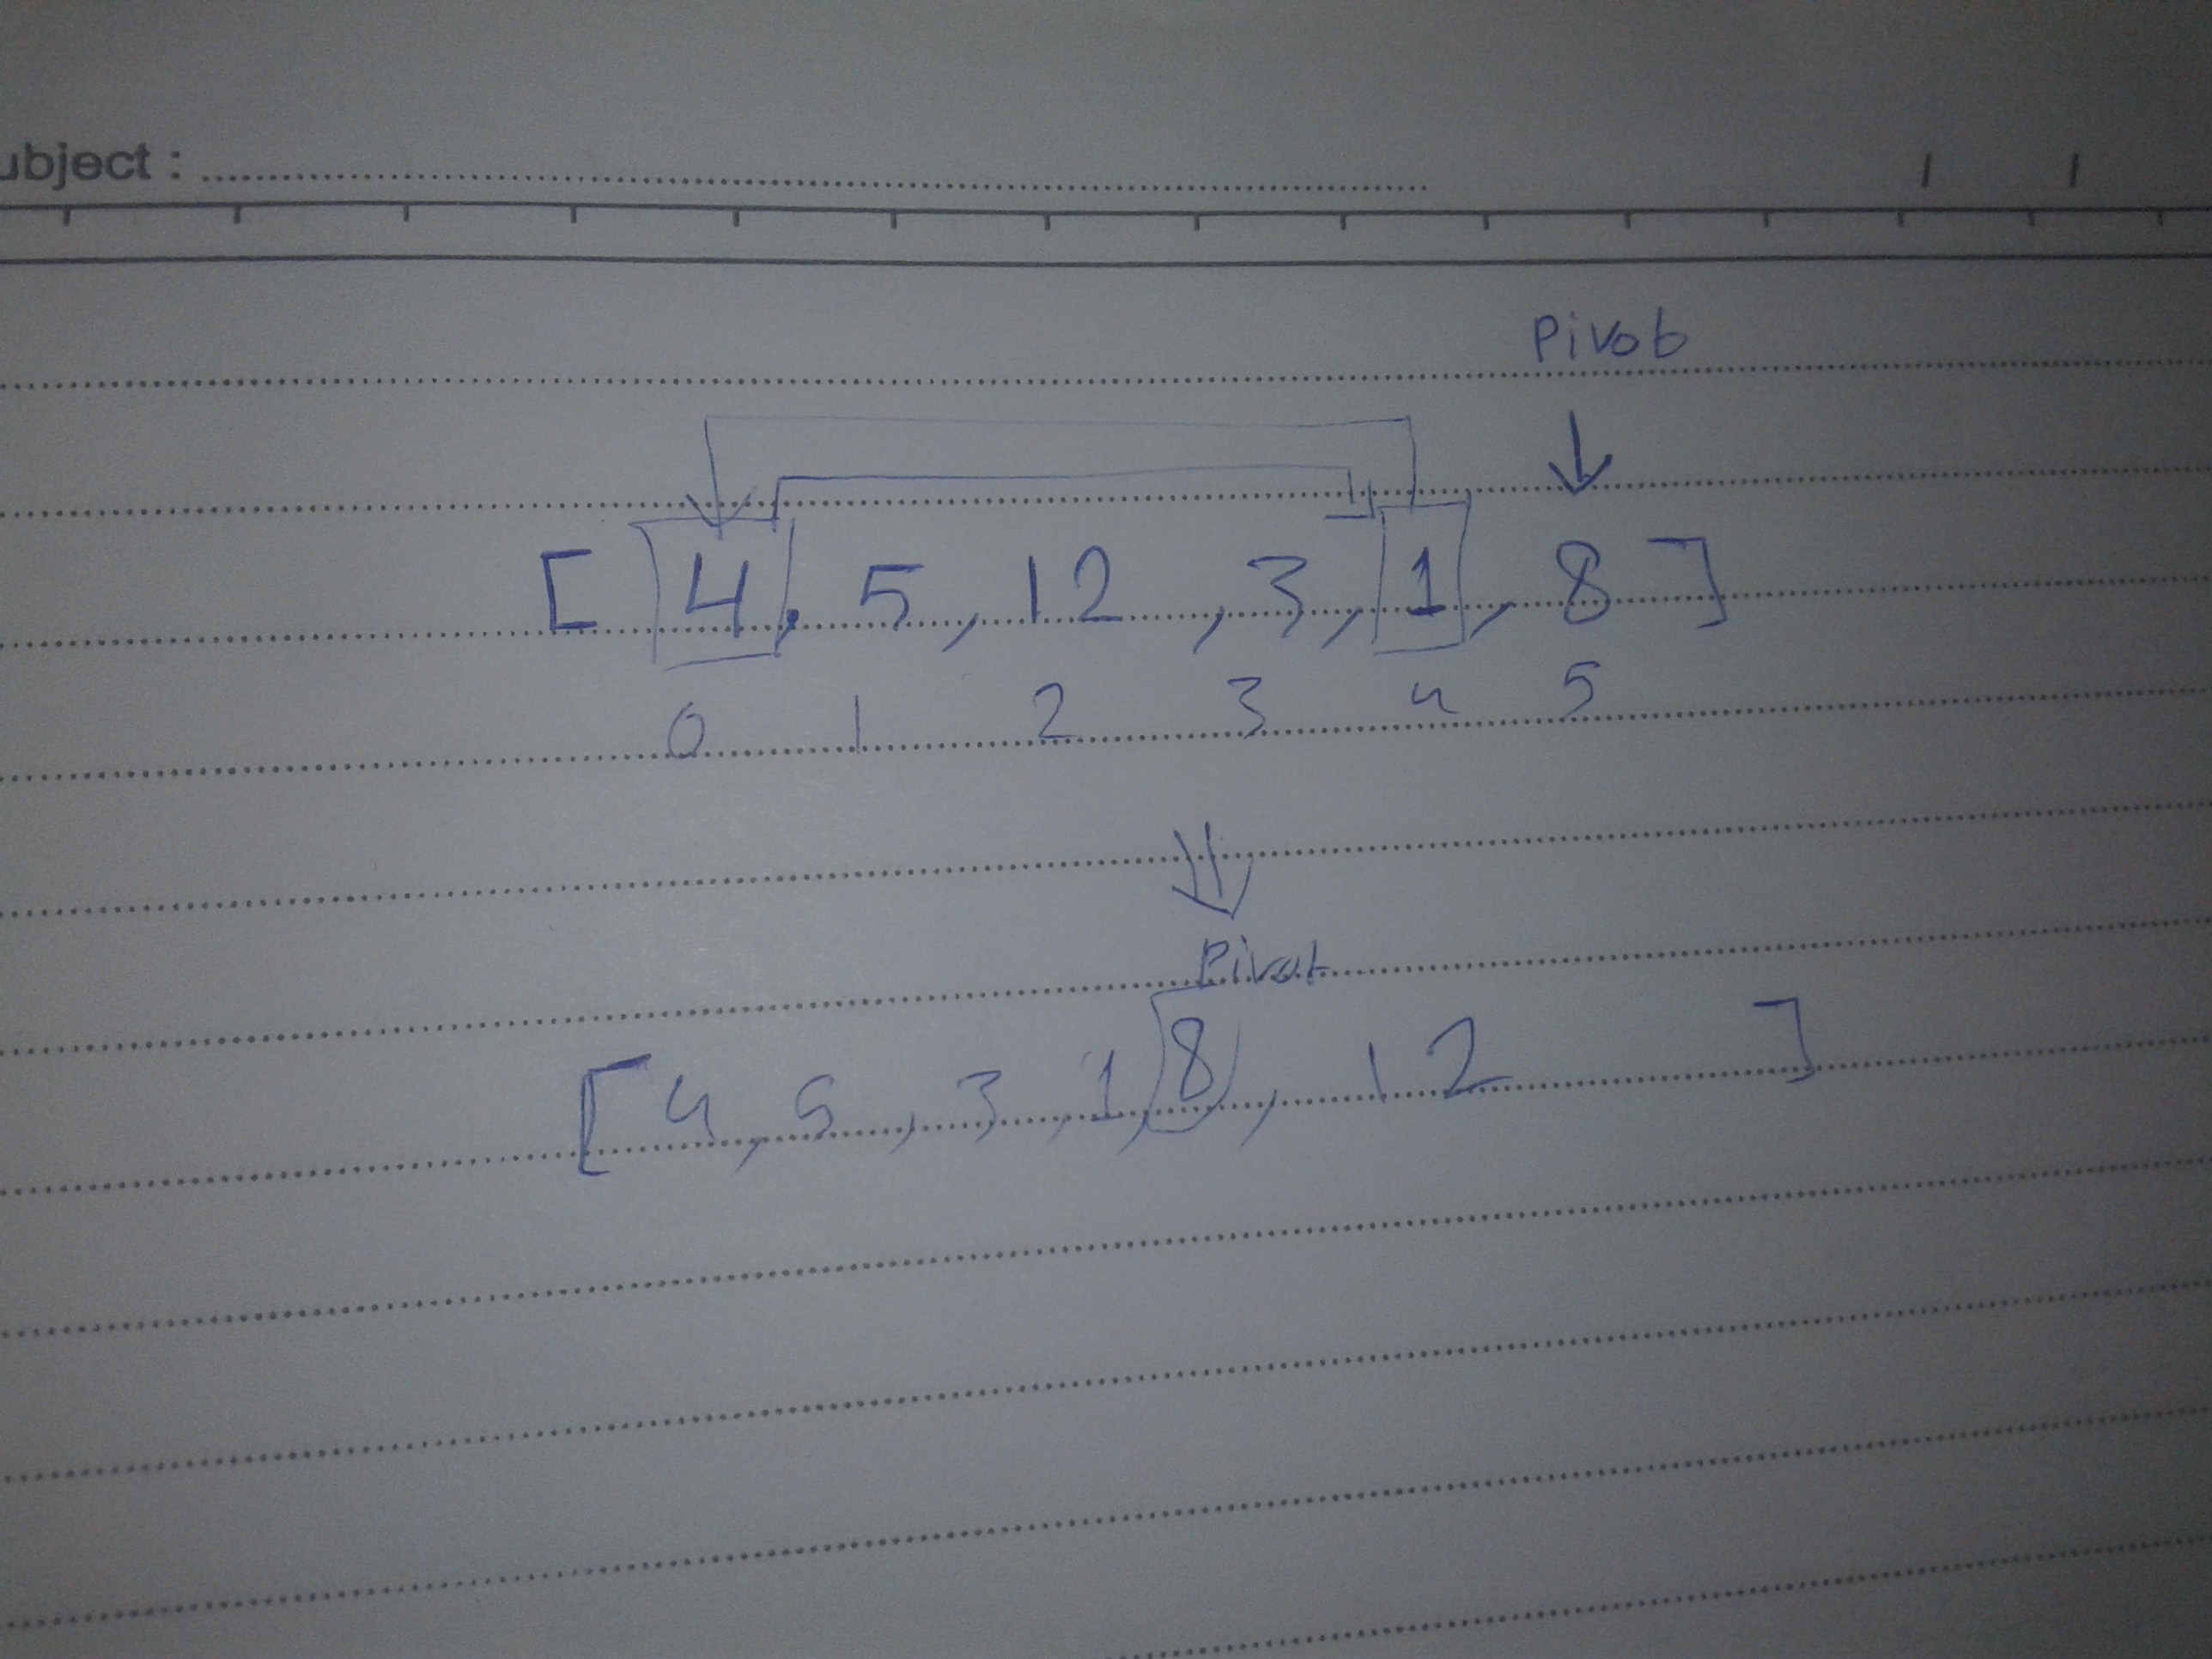 ubject :
/ /
Pivot
[ 4, 5, 12, 3, 1, 8 ]
0 1 2 3 4 5
Pivot
[ 4, 5, 3, 1, 8, 12 ]